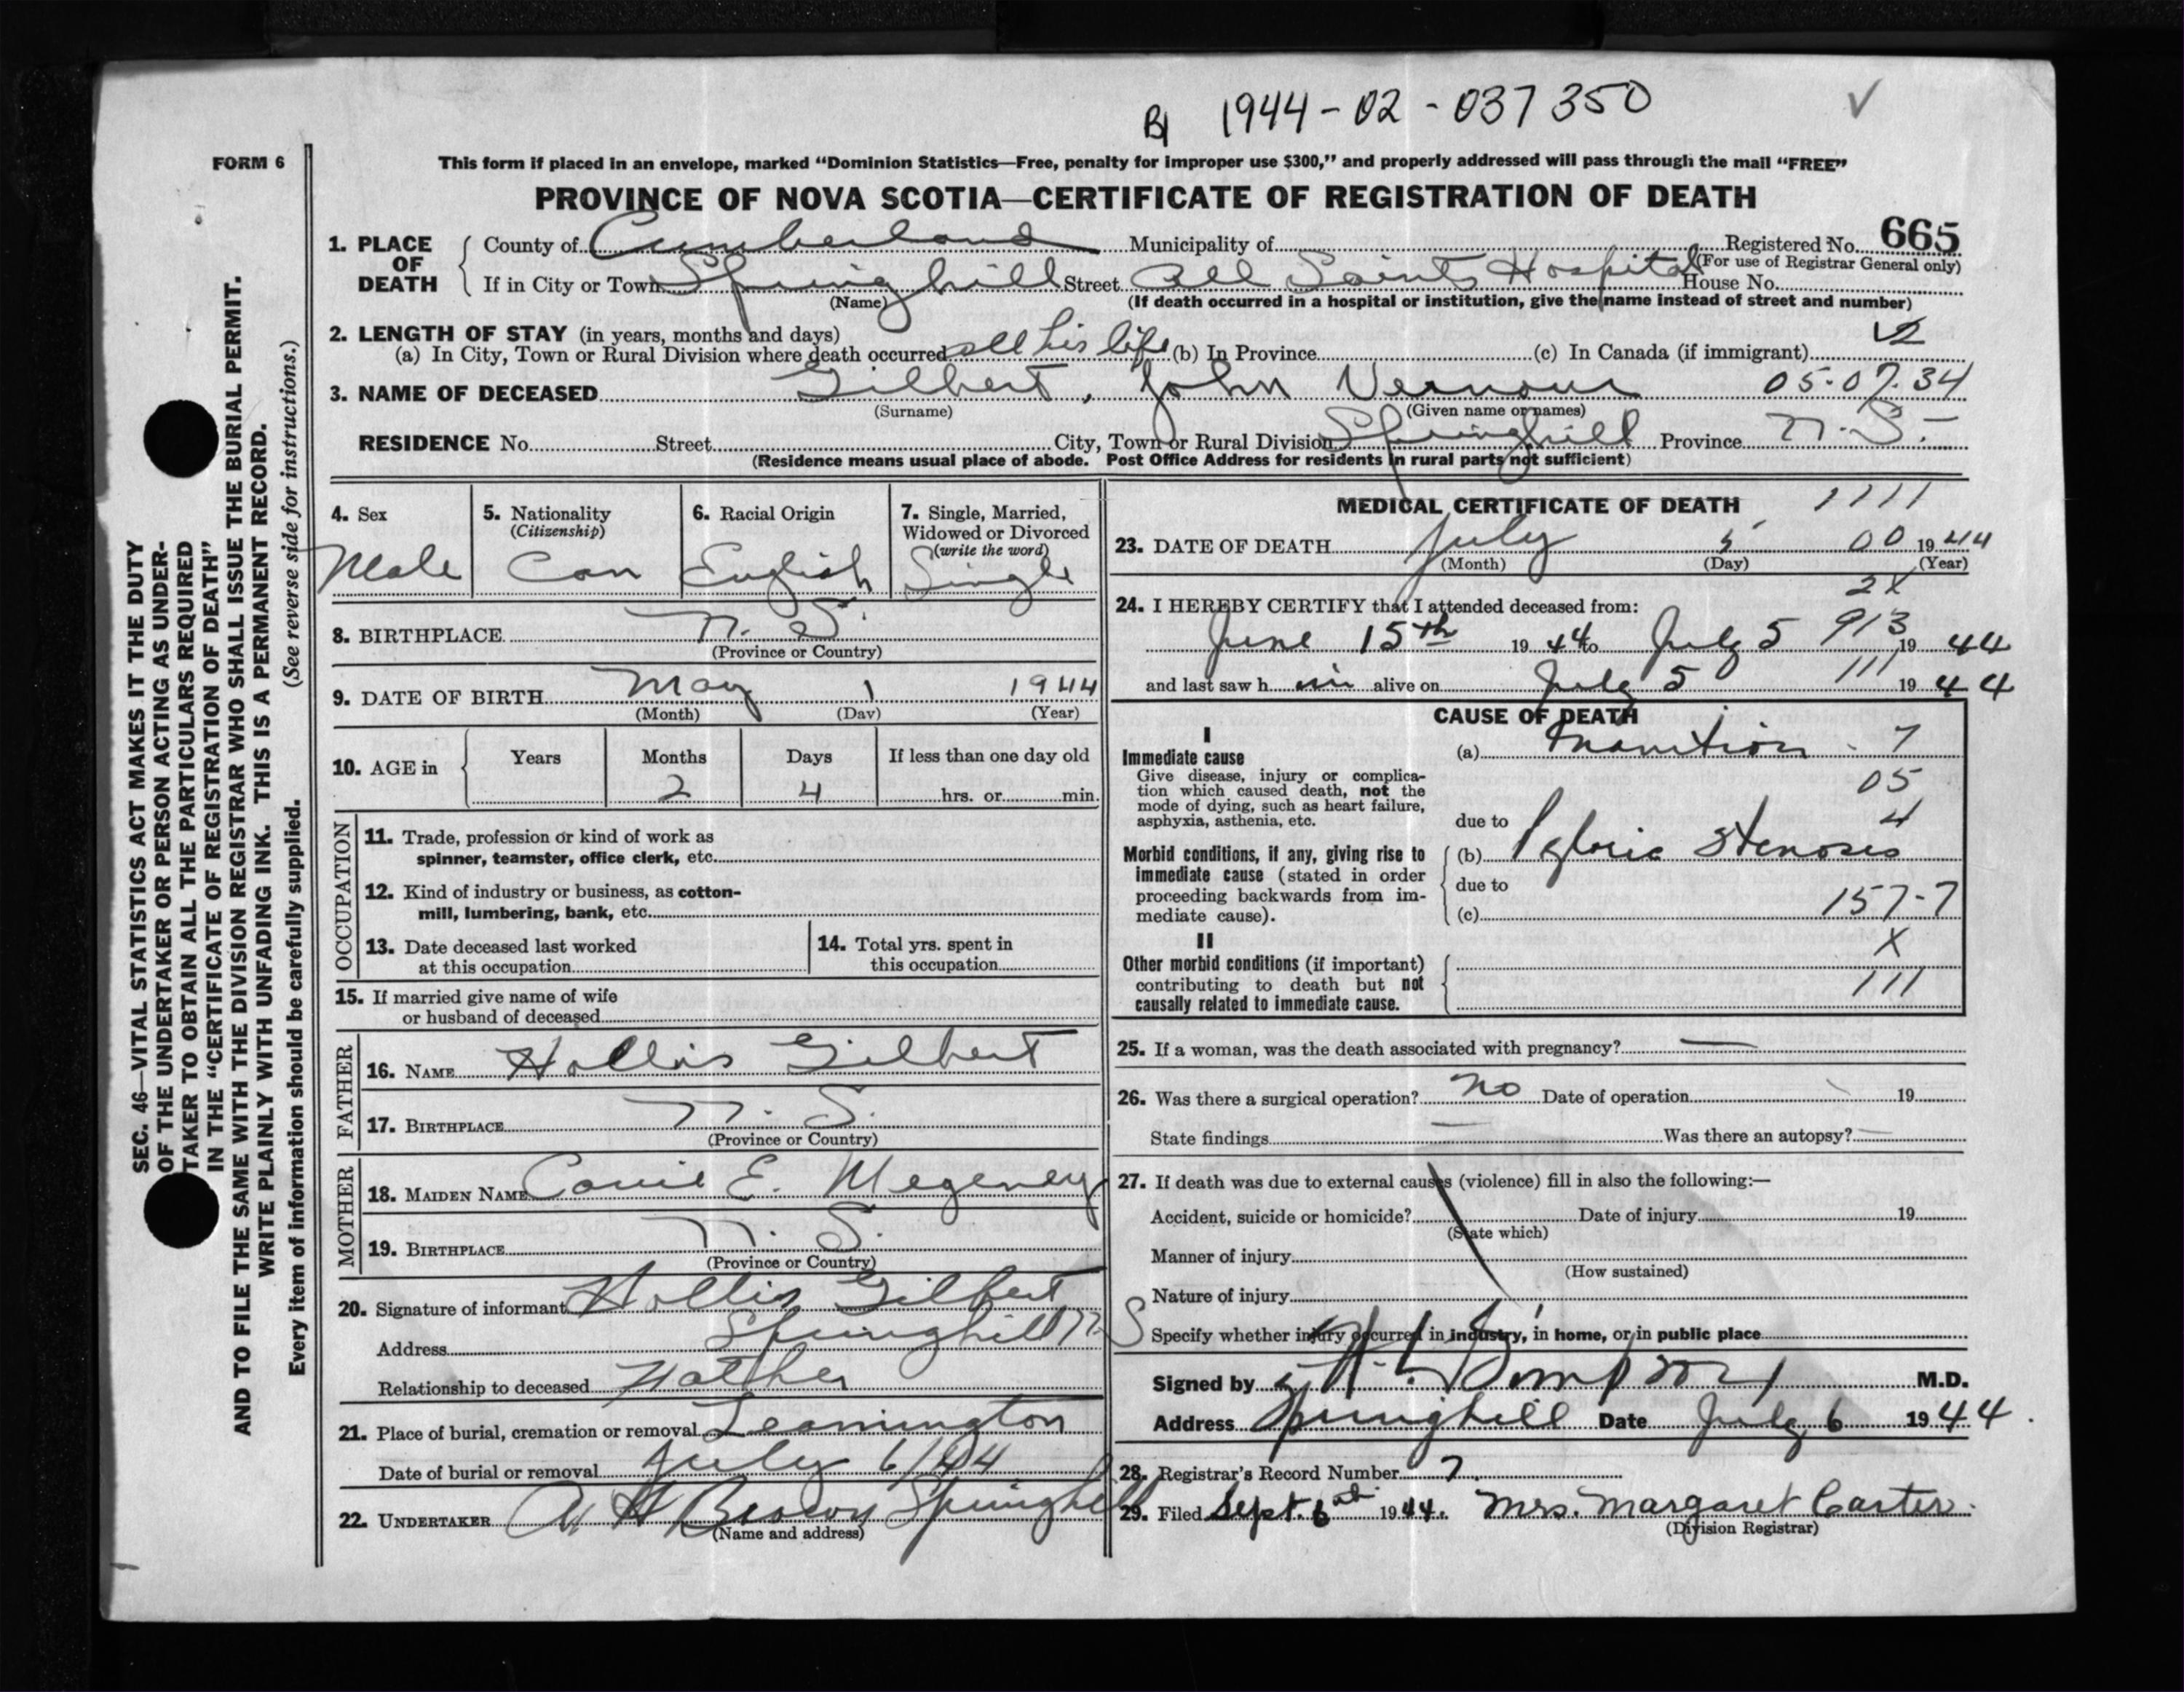 B 1944-02-037350
FORM 6
This form if placed in an envelope, marked "Dominion Statistics—Free, penalty for improper use $300," and properly addressed will pass through the mail "FREE"
PROVINCE OF NOVA SCOTIA—CERTIFICATE OF REGISTRATION OF DEATH
1. PLACE OF DEATH County of Cumberland Municipality of Registered No. 665
(For use of Registrar General only)
If in City or Town Springhill Street All Saints Hospital House No.
(Name) (If death occurred in a hospital or institution, give the name instead of street and number)
2. LENGTH OF STAY (in years, months and days)
(a) In City, Town or Rural Division where death occurred all his life (b) In Province (c) In Canada (if immigrant)
3. NAME OF DECEASED Gilbert, John Vernour 05.07.34
(Surname) (Given name or names)
RESIDENCE No. Street City, Town or Rural Division Springhill Province N.S.
(Residence means usual place of abode. Post Office Address for residents in rural parts not sufficient)
4. Sex
Male
5. Nationality
(Citizenship)
Can
6. Racial Origin
English
7. Single, Married,
Widowed or Divorced
(write the word)
Single
8. BIRTHPLACE N. S.
(Province or Country)
9. DATE OF BIRTH May 1 1944
(Month) (Day) (Year)
10. AGE in Years Months Days If less than one day old
2 4 hrs. or min.
OCCUPATION
11. Trade, profession or kind of work as
spinner, teamster, office clerk, etc.
12. Kind of industry or business, as cotton-
mill, lumbering, bank, etc.
13. Date deceased last worked
at this occupation
14. Total yrs. spent in
this occupation
15. If married give name of wife
or husband of deceased
FATHER
16. NAME Hollis Gilbert
17. BIRTHPLACE N. S.
(Province or Country)
MOTHER
18. MAIDEN NAME E. Megeney
19. BIRTHPLACE N. S.
(Province or Country)
20. Signature of informant Hollis Gilbert
Address Springhill N.S
Relationship to deceased Father
21. Place of burial, cremation or removal Leamington
Date of burial or removal July 6/44
22. UNDERTAKER A H Brown Springhill
(Name and address)
MEDICAL CERTIFICATE OF DEATH 1111
23. DATE OF DEATH July 5 00 1944
(Month) (Day) (Year)
2X
24. I HEREBY CERTIFY that I attended deceased from:
June 15th 1944 to July 5 913 1944
and last saw him alive on July 5 111 1944
CAUSE OF DEATH
I
Immediate cause
Give disease, injury or complica-
tion which caused death, not the
mode of dying, such as heart failure,
asphyxia, asthenia, etc.
(a) Inanition - 7
05
4
due to
Morbid conditions, if any, giving rise to
immediate cause (stated in order
proceeding backwards from im-
mediate cause).
(b) Pyloric Stenosis
due to
(c) 157-7
X
II
Other morbid conditions (if important)
contributing to death but not
causally related to immediate cause.
111
25. If a woman, was the death associated with pregnancy? —
26. Was there a surgical operation? no Date of operation 19
State findings — Was there an autopsy? —
27. If death was due to external causes (violence) fill in also the following:—
Accident, suicide or homicide? Date of injury 19
(State which)
Manner of injury
(How sustained)
Nature of injury
Specify whether injury occurred in industry, in home, or in public place
Signed by Simpson M.D.
Address Springhill Date July 6 1944.
28. Registrar's Record Number 7.
29. Filed Sept. 6 1944. Mrs. Margaret Carter.
(Division Registrar)
SEC. 46—VITAL STATISTICS ACT MAKES IT THE DUTY
OF THE UNDERTAKER OR PERSON ACTING AS UNDER-
TAKER TO OBTAIN ALL THE PARTICULARS REQUIRED
IN THE "CERTIFICATE OF REGISTRATION OF DEATH"
AND TO FILE THE SAME WITH THE DIVISION REGISTRAR WHO SHALL ISSUE THE BURIAL PERMIT.
WRITE PLAINLY WITH UNFADING INK. THIS IS A PERMANENT RECORD.
Every item of information should be carefully supplied. (See reverse side for instructions.)